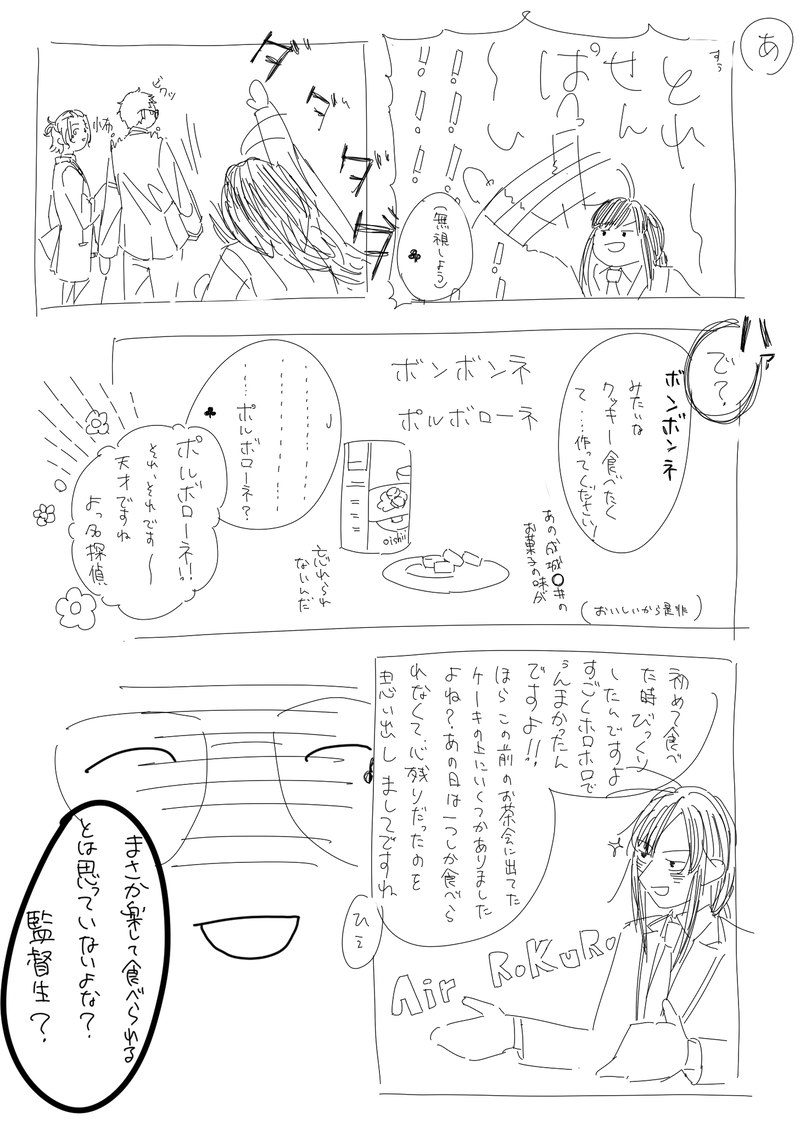 あ
すぅ
とれ
せん
ぱっ
い
!!
!!
!!
!!
(無視しよう)
♣
ダ
ダ
ダ
ダ
ビクッ
小布
で?
ボンボンネ
みたいな
クッキー食べたく
て‥‥作ってください!
ボンボンネ
ポルボローネ
oishii
あの成城○井の
お菓子の味が
忘れられ
ないんだ
(おいしいから是非)
……ポルボローネ?
♣
ポルボローネ!!
それ、それです〜
天才ですね
よっ名探偵
初めて食べ
た時びっくり
したんですよ
すごくホロホロで
うんまかったん
ですよ!!
ほらこの前のお茶会に出てた
ケーキの上にいくつかありました
よね?あの日は一つしか食べら
れなくて、心残りだったのを
思い出しましてですね
Air RoKuRo
ひぇ
まさか楽して食べられる
とは思っていないよな?
監督生?